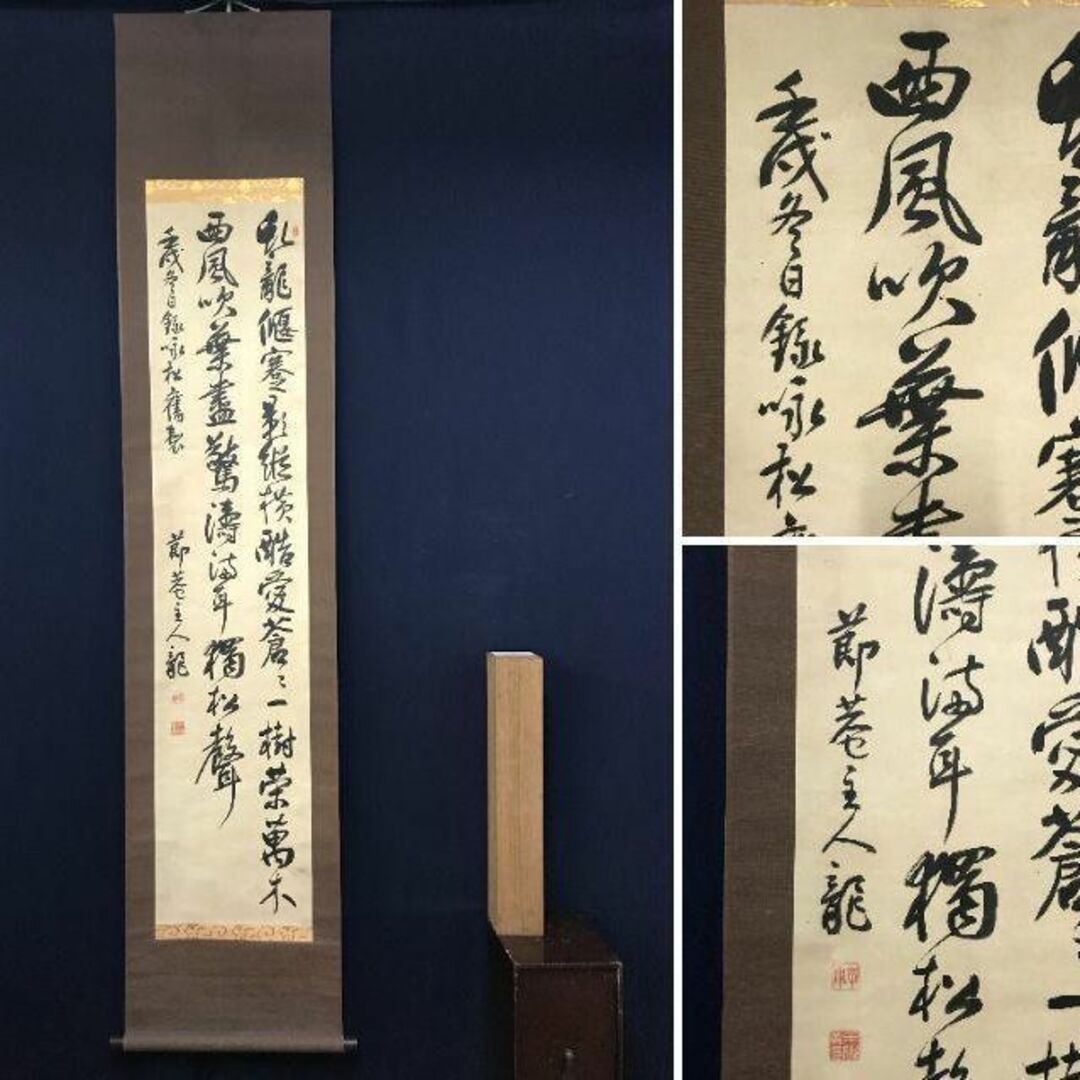 虬龍偃蹇影縱横酷愛蒼〻一樹荣萬木
西風吹葉盡驚濤満耳獨松聲
壬戌冬日録咏松舊製
節菴主人龍